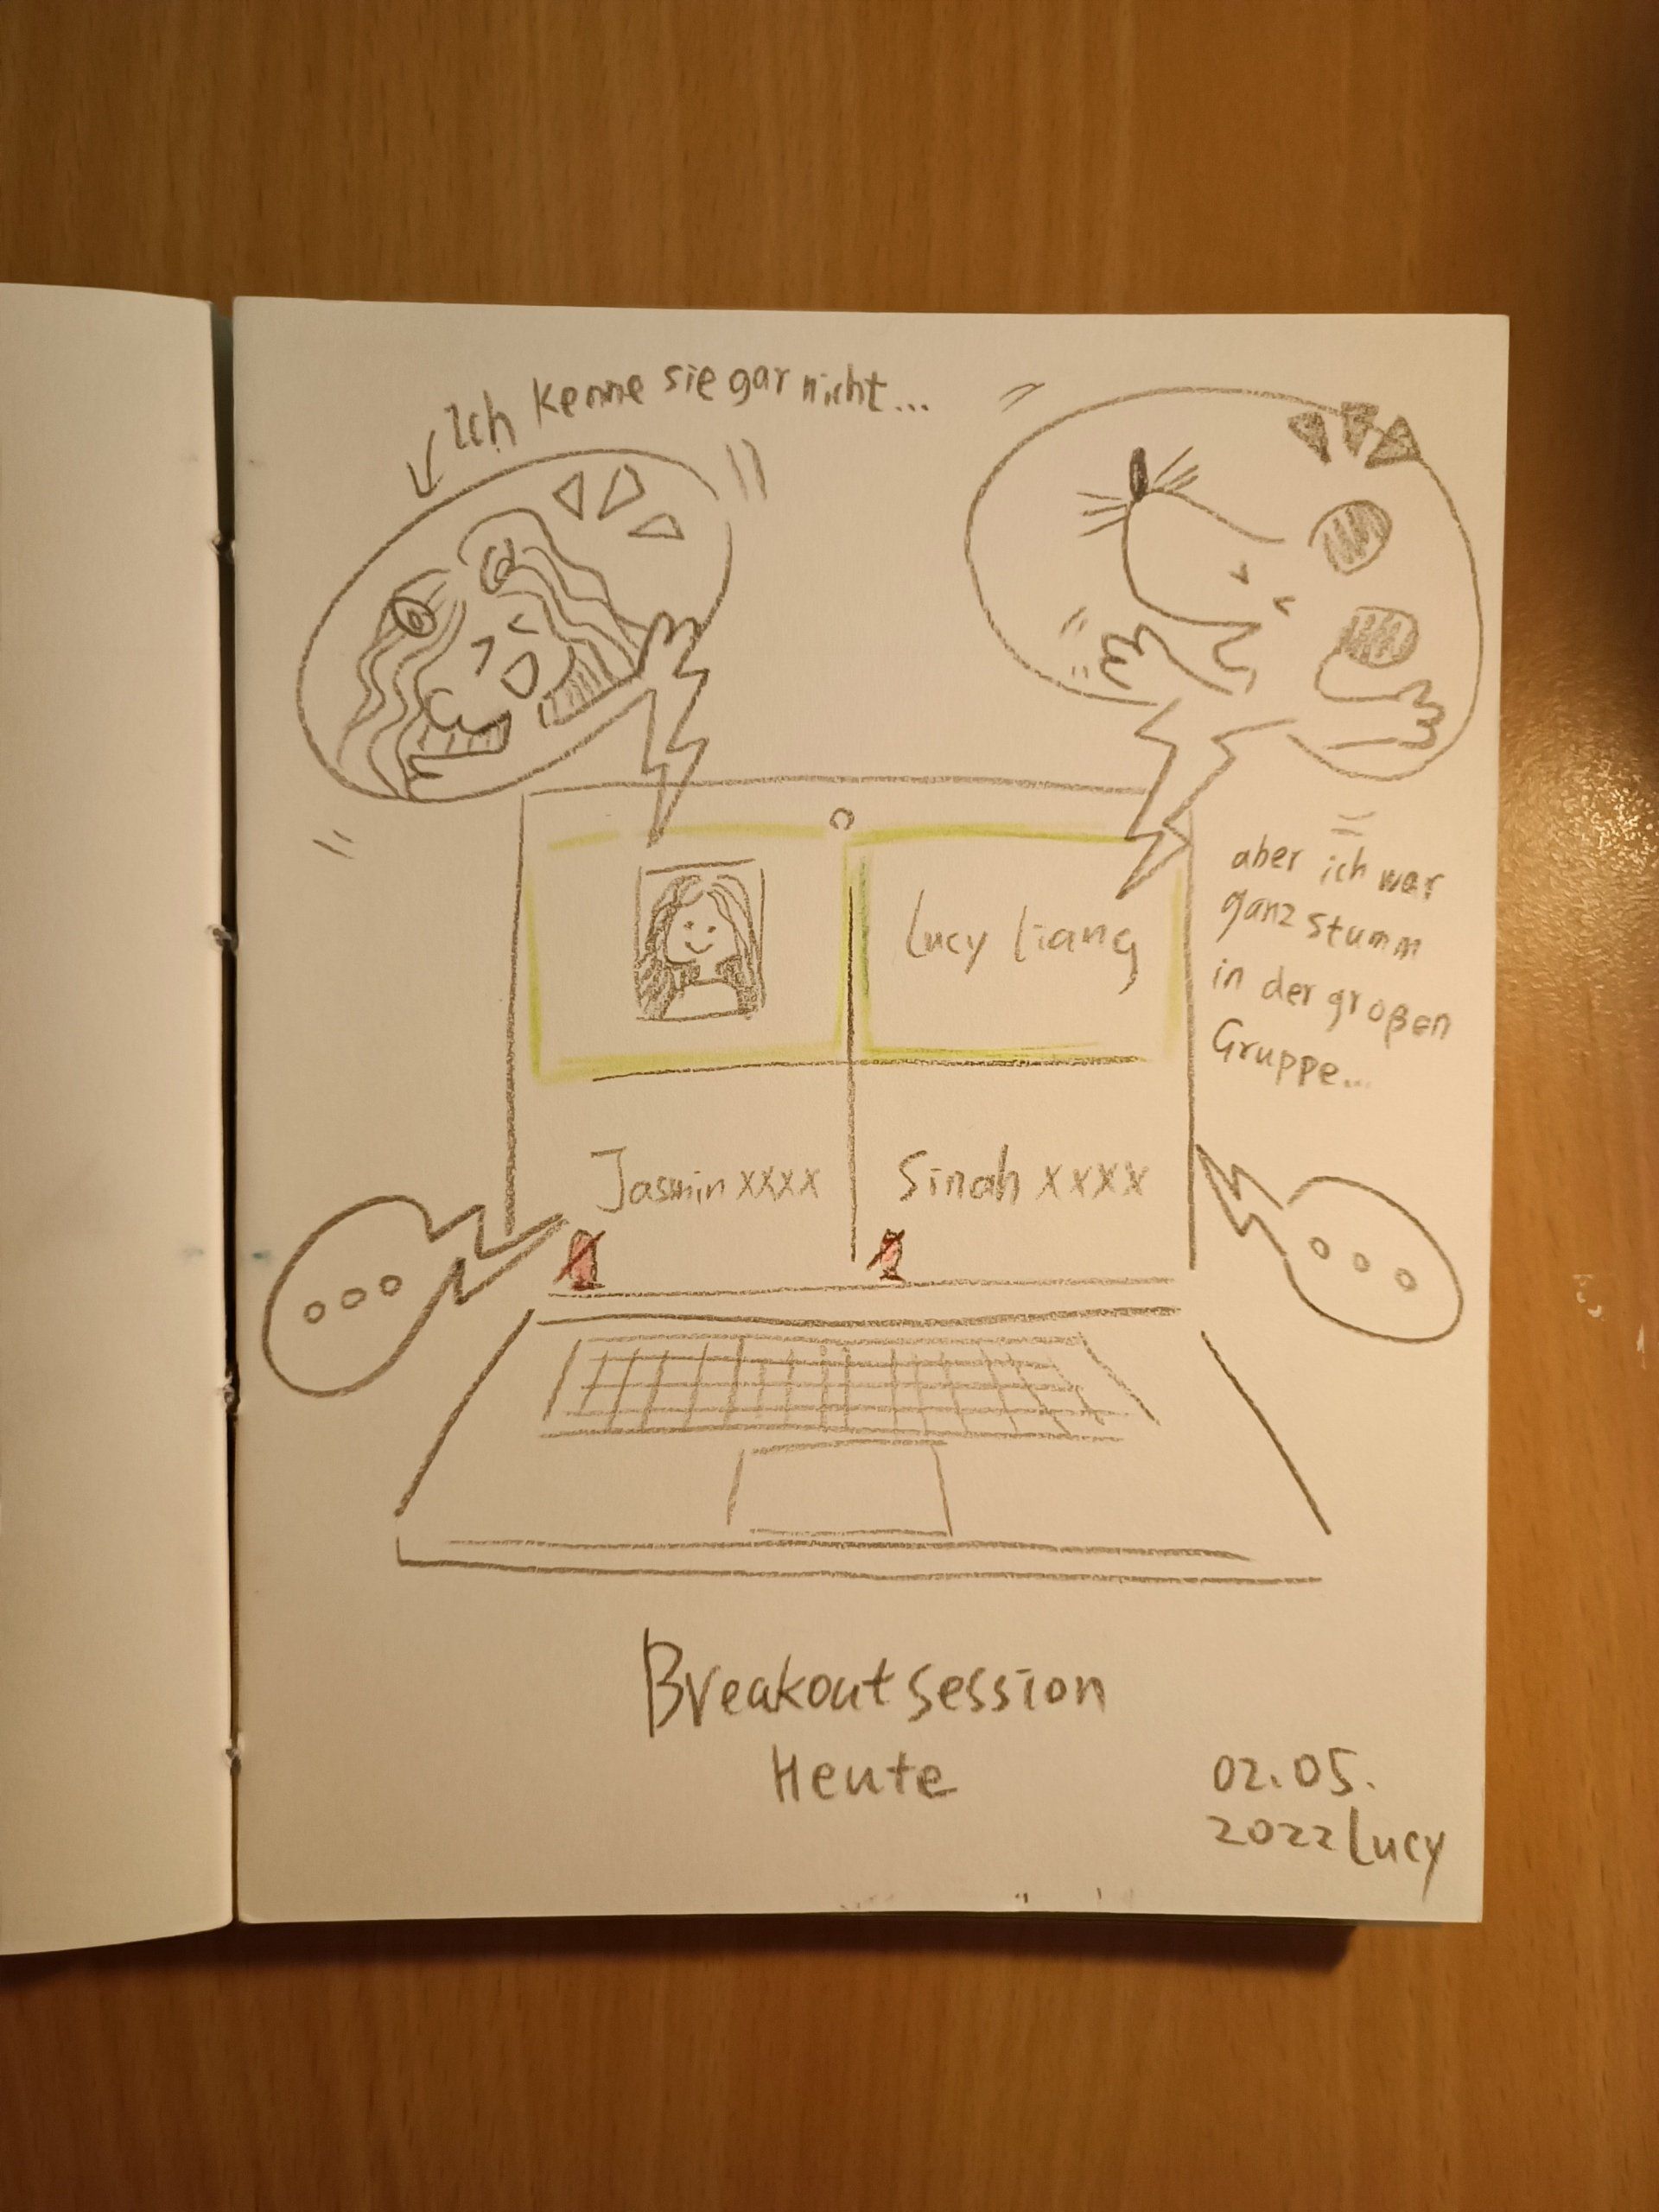 Ich kenne sie gar nicht...
Lucy Liang
aber ich war
ganz stumm
in der großen
Gruppe...
Jasmin xxxx
Sinah xxxx
Breakout session
Heute
02.05.
2022 Lucy